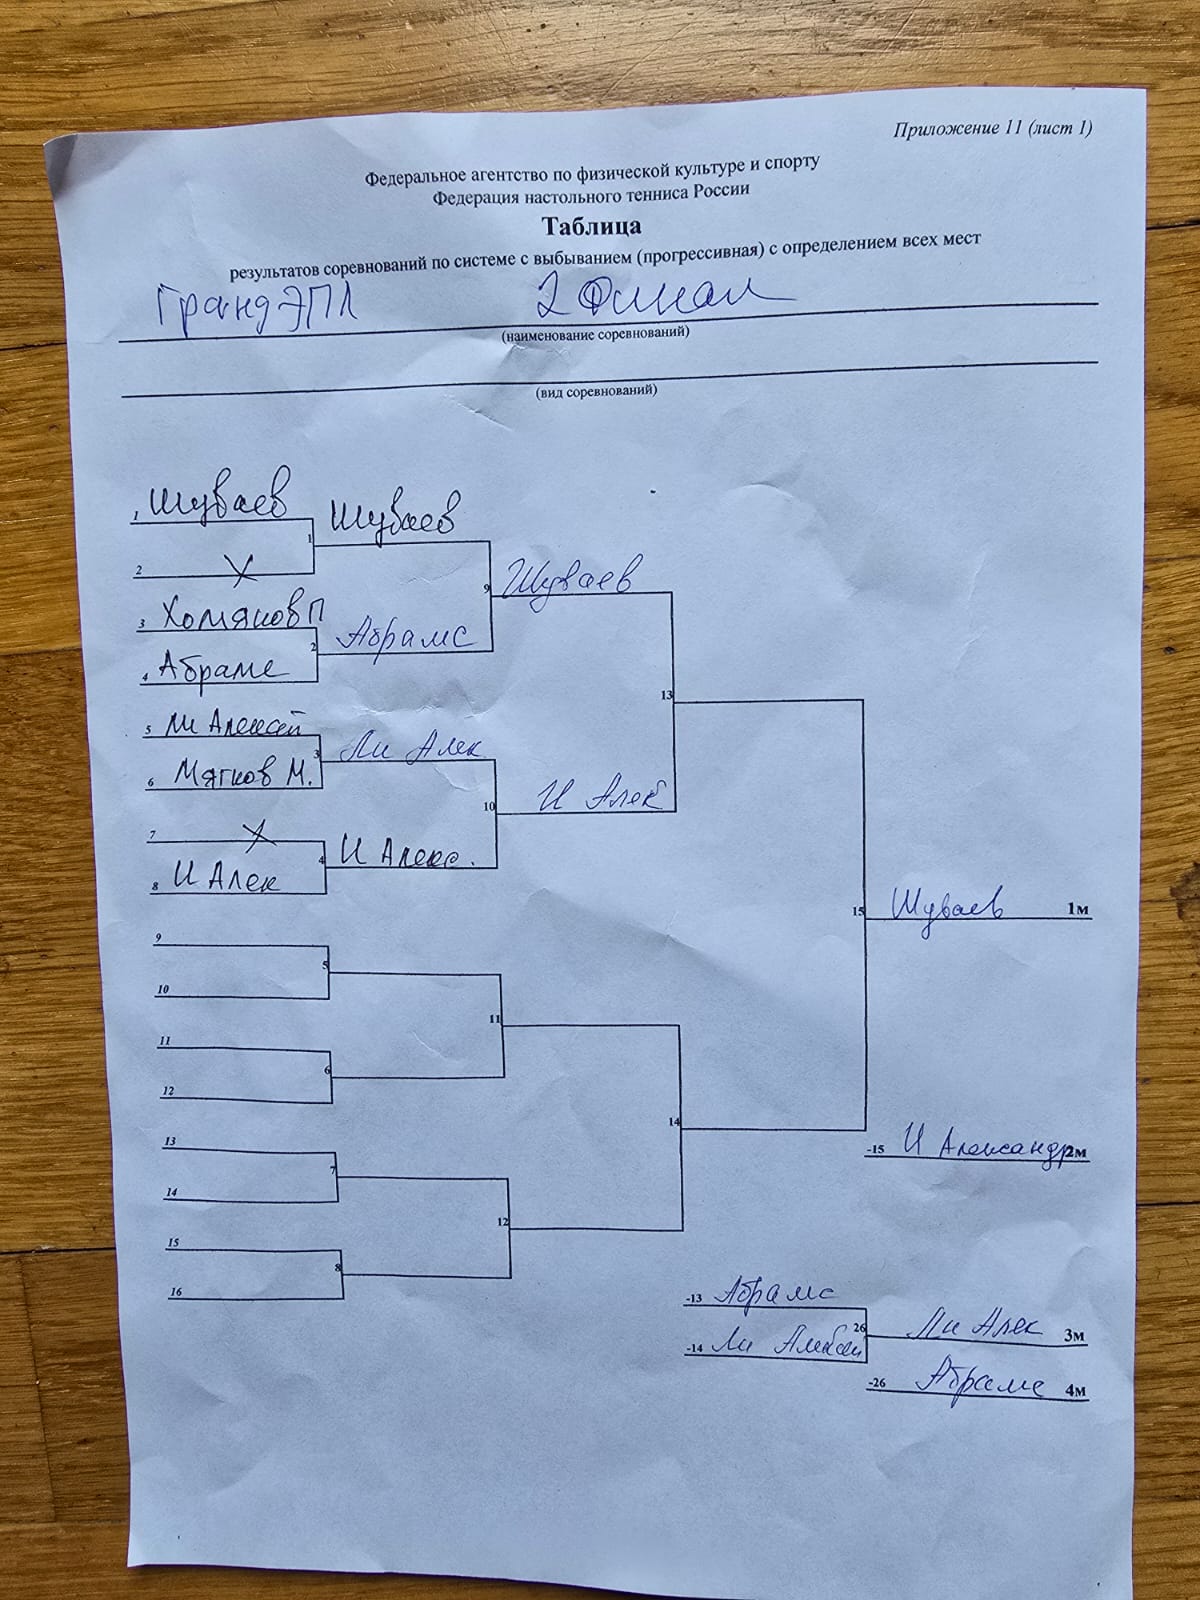 Приложение 11 (лист 1)
Федеральное агентство по физической культуре и спорту
Федерация настольного тенниса России
Таблица
результатов соревнований по системе с выбыванием (прогрессивная) с определением всех мест
Гранд ЭПЛ 2 Финал
(наименование соревнований)
(вид соревнований)
1 Шуваев
1 Шуваев
2 X
9 Шуваев
3 Хомяков П
2 Абрамс
4 Абрамс
13
5 Ли Алексей
3 Ли Алек
6 Мягков М.
10 И Алек
7 X
4 И Алекс.
8 И Алек
15 Шуваев 1м
9
5
10
11
11
6
12
14
13
7
14
12
15
8
16
-15 И Александр 2м
-13 Абрамс
26 Ли Алек 3м
-14 Ли Алексей
-26 Абрамс 4м